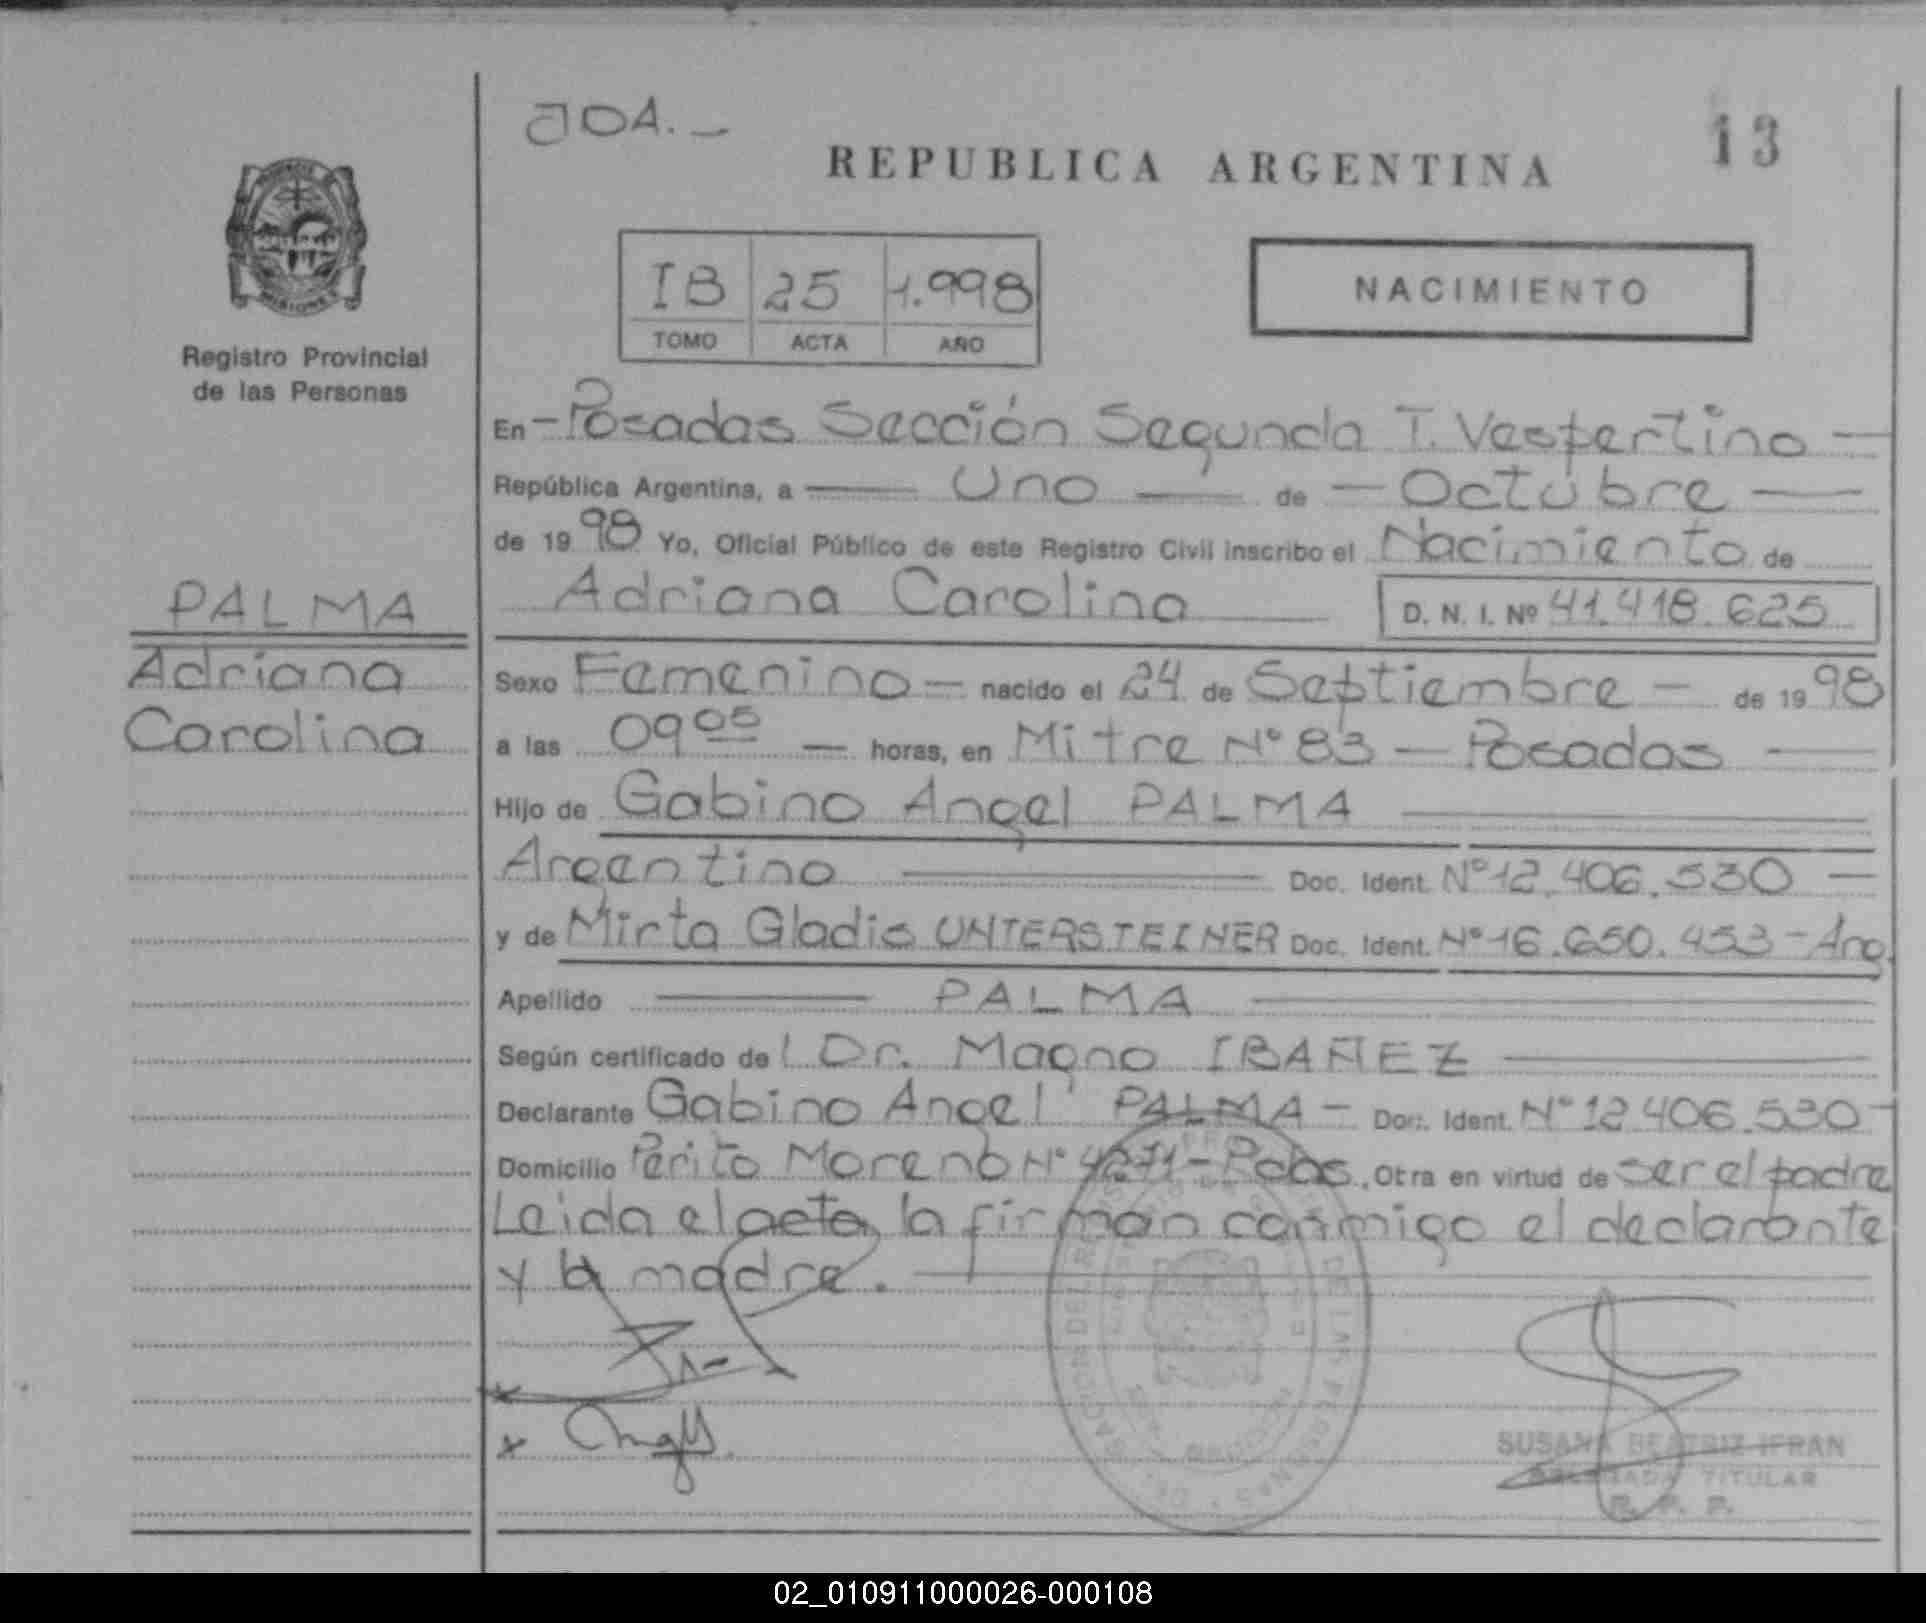 JOA.-
13
REPUBLICA ARGENTINA
MISIONES
Registro Provincial
de las Personas
IB 25 1.998
TOMO ACTA AÑO
NACIMIENTO
En - Posadas Sección Segunda T. Vespertino -
República Argentina, a — Uno — de - Octubre -
de 19 98 Yo, Oficial Público de este Registro Civil inscribo el Nacimiento de
Adriana Carolina D. N. I. Nº 41.418.625
PALMA
Adriana
Carolina
Sexo Femenino - nacido el 24 de Septiembre - de 19 98
a las 09 05 - horas, en Mitre Nº 83 - Posadas -
Hijo de Gabino Angel PALMA
Argentino — Doc. Ident. Nº 12.406.530 -
y de Mirta Gladis UNTERSTEINER Doc. Ident. Nº 16.650.453 - Arg.
Apellido — PALMA —
Según certificado de l Dr. Magno IBAÑEZ —
Declarante Gabino Angel PALMA - Doc. Ident. Nº 12.406.530 -
Domicilio Perito Moreno Nº 4271 - Pdas. Otra en virtud de ser el padre
Leida el acta, la firman conmigo el declarante
y la madre. —
x
x
SUSANA BEATRIZ IFRAN
DELEGADA TITULAR
R. P. P.
02_010911000026-000108